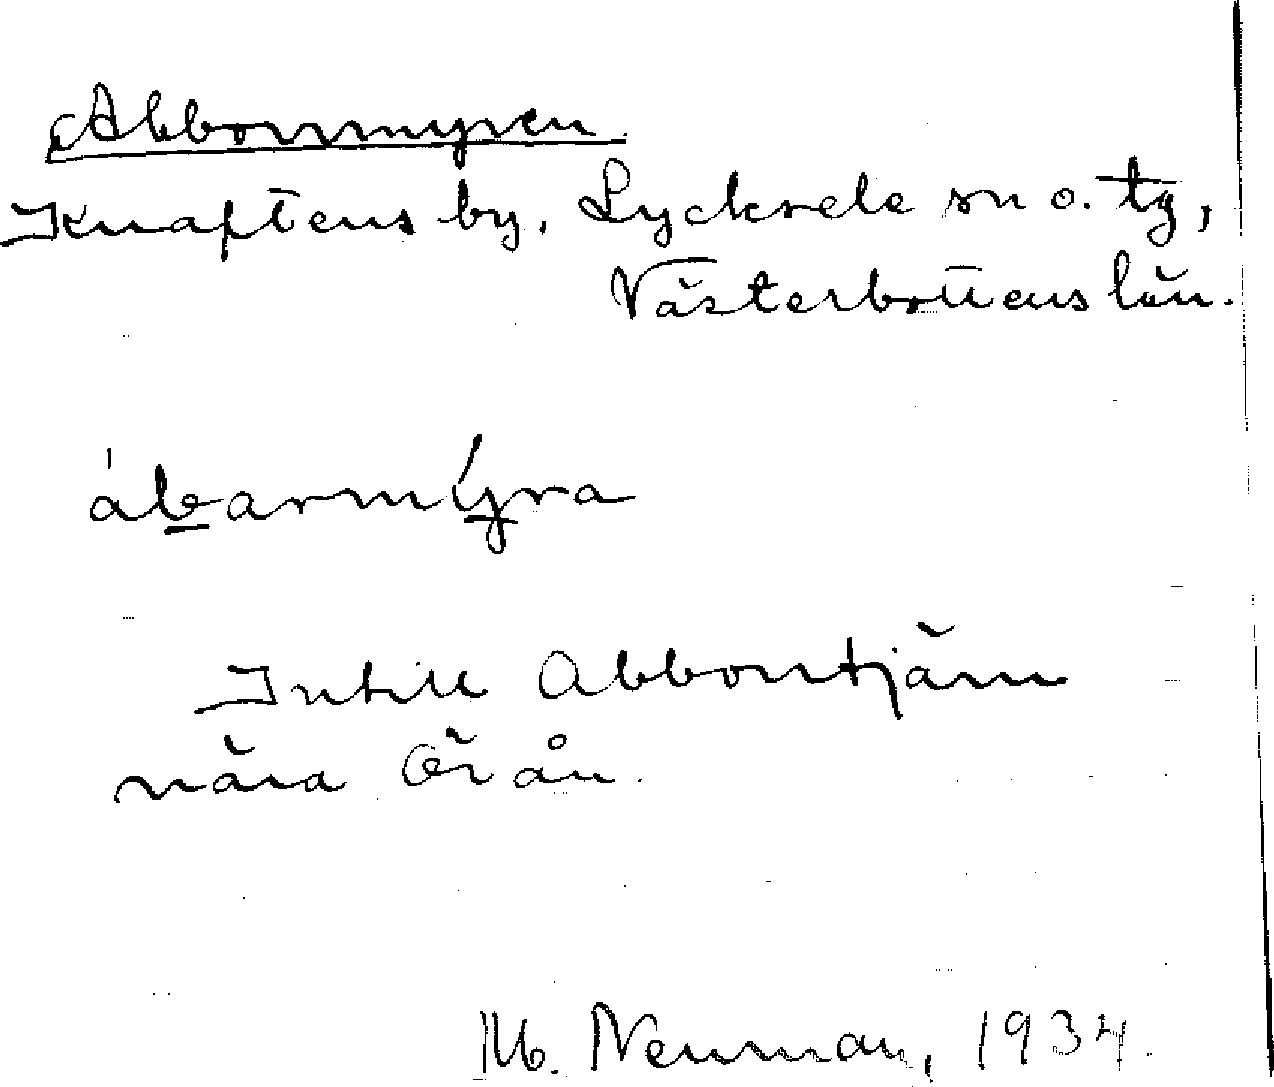 Abborrmyren
Knaftens by, Lycksele sn o. tg,
Västerbottens län.
ábarmýra
Intill Abborrtjärn
nära Örån.
M. Neuman, 1934.